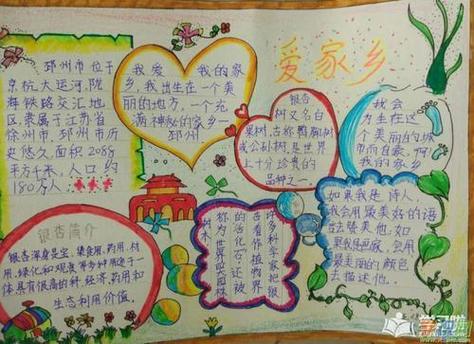 爱家乡
邳州市位于
京杭大运河,陇
海铁路交汇地
区隶属于江苏省
徐州市,邳州市历
史悠久,面积2088
平方千米,人口约
180万人
我爱我的家
乡,我出生在一个美
丽的地方,一个充
满神秘的家乡一
邳州
银杏
树又名白
果树,古称鸭脚树
或公孙树,是世界
上十分珍贵的
品种之一
我会
为生在这
个美丽的城
市而自豪,啊!
我的家乡
银杏简介
银杏浑身是宝,集食用,药用,材
用,绿化和观赏等多种用途于一
体具有很高的科,经济,药用和
生态利用价值.
许多科学家把银
杏看作植物界
的活化石,还被
称为世界
树木
如果我是诗人,
我会用最美好的语
言去赞美他,如
果我是画家,会用
最美丽的颜色
去描述他.
学习啦